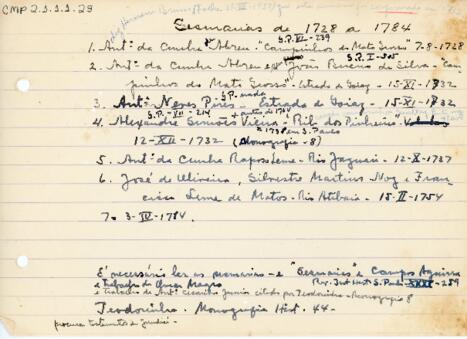 CMP 2.1.1.1.29
Sesmarias de 1728 a 1784
S.P. VI - 239
1. Antº da Cunha Abreu "Campinhos do Mato Grosso" 7-8-1728
S.P. I - 305
2. Antº da Cunha Abreu e João Bueno da Silva - "Cam-
pinhos do Mato Grosso - Estrada de Goiaz - 15-XI-1732
3. Antº Neves Pires - Estrada de Goiaz - 15-XI-1732
4. Alexandre Simões Vieira - Rib. do Pinheiro -
12-XII-1732 (Monografia - 8)
5. Antº da Cunha Raposo Leme - Rio Jaguari - 12-X-1737
6. José de Oliveira, Silvestre Martins Nog. e Fran-
cisco Leme de Matos - Rio Atibaia - 15-II-1754
7 - 3-IV-1784.
É necessário ler as sesmarias - e "Sesmarias" e Campos Aguirra
e trabalho de Omar Magro Rev. Inst. Hist. S. Paulo XXXII - 259
e trabalho de Antº citado por Teodorinho - Monografia 8
Teodorinho. Monografia Hist. 44-
procure testamentos e